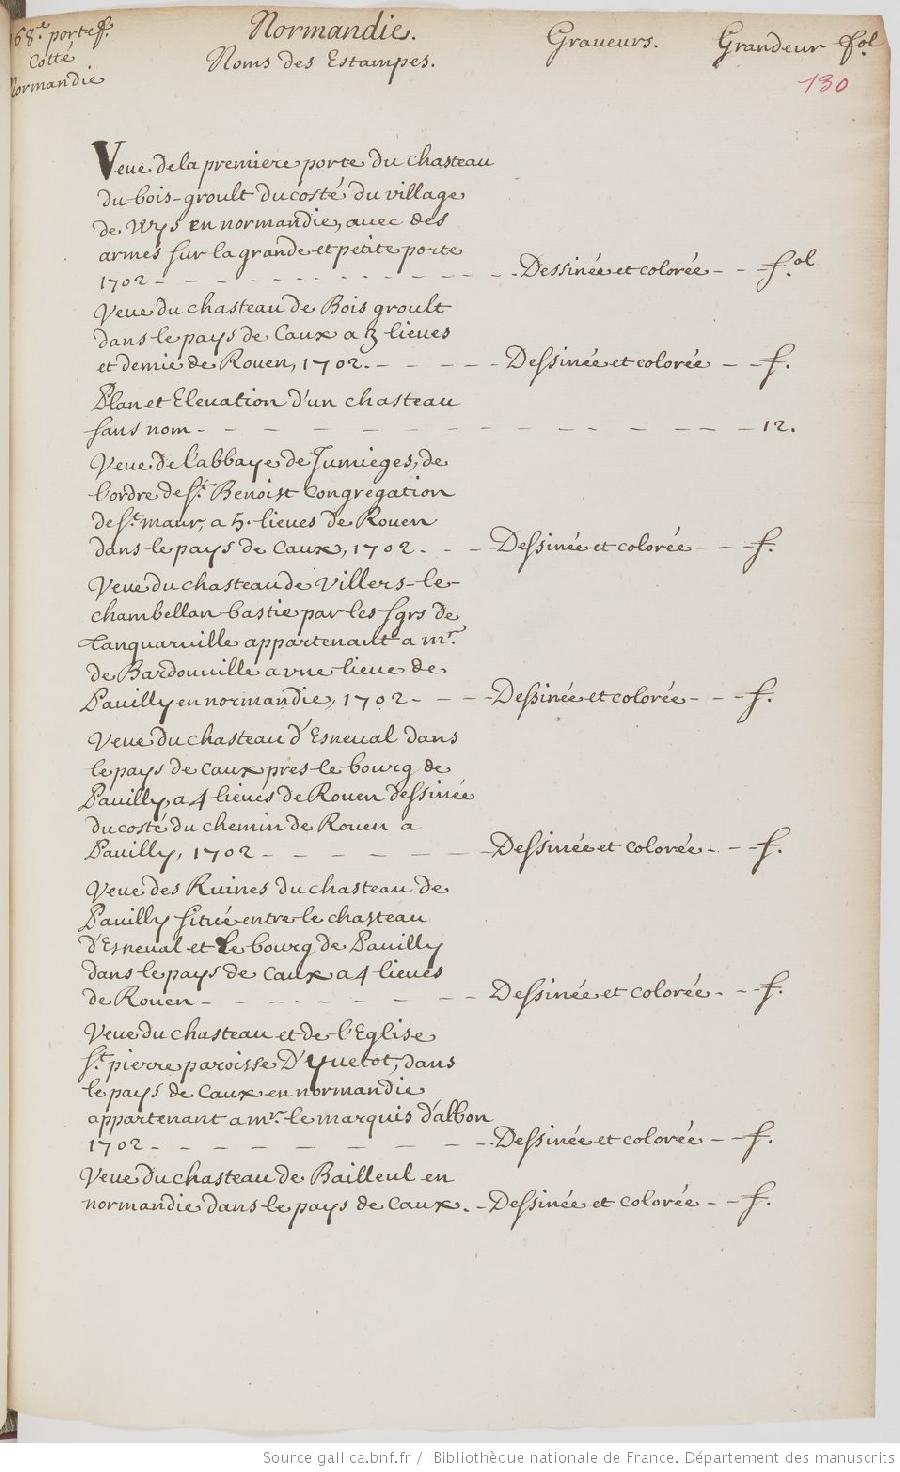 168.e portef.
Cotté
Normandie
Normandie.
Noms des Estampes.
Graveurs.
Grandeur fol
130
Veue de la premiere porte du chasteau
du bois-groult du costé du village
de Wys en normandie, avec des
armes sur la grande et petite porte
1702 - - - - - - - - - - Dessinée et colorée - - fol
Veue du chasteau de Bois groult
dans le pays de Caux a 3 lieues
et demie de Rouen, 1702. - - - - - Dessinée et colorée - - f.
Plan et Elevation d'un chasteau
sans nom - - - - - - - - - - - - 12.
Veue de l'abbaye de Jumieges, de
l'ordre de St. Benoist Congregation
de St. maur, a 5. lieues de Rouen
dans le pays de Caux, 1702. - - - Dessinée et colorée - - f.
Veue du chasteau de Villers-le-
chambellan bastie par les sgrs de
Tanquarville appartenant a mr.
de Bardouville a vne lieue de
Pauilly en normandie, 1702 - - - - Dessinée et colorée - - - f.
Veue du chasteau d'Esneval dans
le pays de Caux pres le bourg de
Pauilly, a 4 lieues de Rouen dessinée
du costé du chemin de Rouen a
Pauilly, 1702 - - - - - - - Dessinée et colorée - - f.
Veue des Ruines du chasteau de
Pauilly située entre le chasteau
d'Esneval et le bourg de Pauilly
dans le pays de Caux a 4 lieues
de Rouen - - - - - - - - Dessinée et colorée - - f.
Veue du chasteau et de l'Eglise
St. pierre paroisse D'yuetot, dans
le pays de Caux en normandie
appartenant a mr. le marquis d'albon
1702 - - - - - - - - - Dessinée et colorée - - f.
Veue du chasteau de Bailleul en
normandie dans le pays de Caux. - Dessinée et colorée - - f.
Source gallica.bnf.fr / Bibliothèque nationale de France. Département des manuscrits